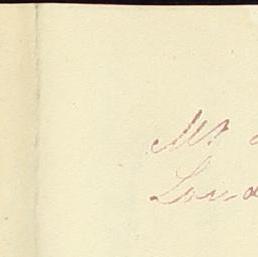 Mr.
Lond